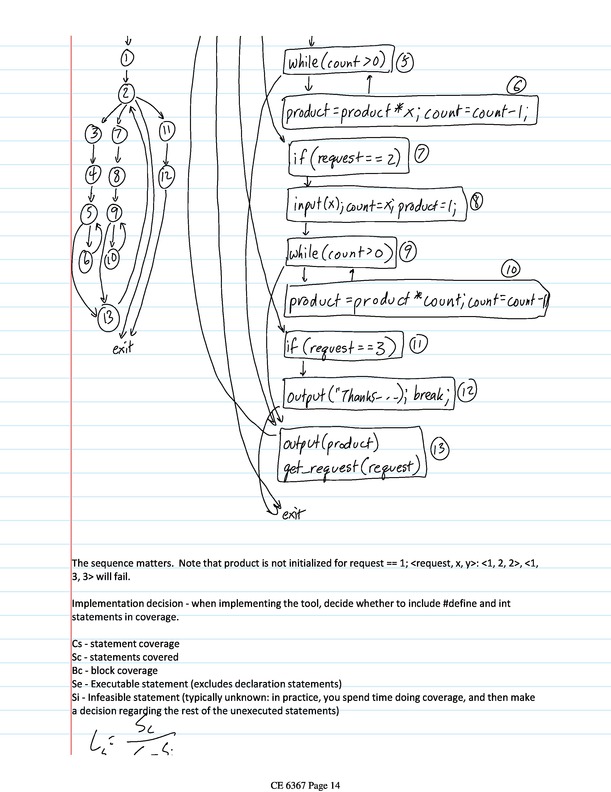 1
2
3 7 11
4 8 12
5 9
6 10
13
exit
while(count>0) 5
6
product=product*x; count=count-1;
if(request==2) 7
input(x); count=x; product=1; 8
while(count>0) 9
10
product=product*count; count=count-1
if(request==3) 11
output("Thanks---); break; 12
output(product)
get_request(request) 13
exit
The sequence matters.  Note that product is not initialized for request == 1; <request, x, y>: <1, 2, 2>, <1,
3, 3> will fail.
Implementation decision - when implementing the tool, decide whether to include #define and int
statements in coverage.
Cs - statement coverage
Sc - statements covered
Bc - block coverage
Se - Executable statement (excludes declaration statements)
Si - Infeasible statement (typically unknown: in practice, you spend time doing coverage, and then make
a decision regarding the rest of the unexecuted statements)
CE 6367 Page 14